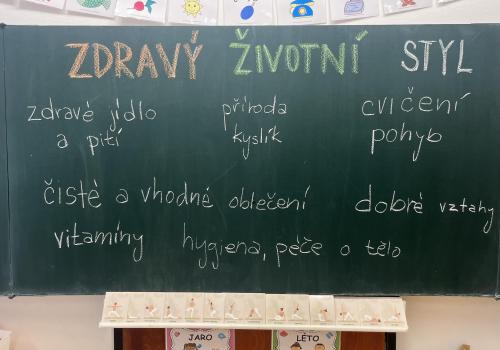 ZDRAVÝ ŽIVOTNÍ STYL
zdravé jídlo a pití
příroda kyslík
cvičení pohyb
čisté a vhodné oblečení
dobré vztahy
vitamíny
hygiena, péče o tělo
JARO
LÉTO